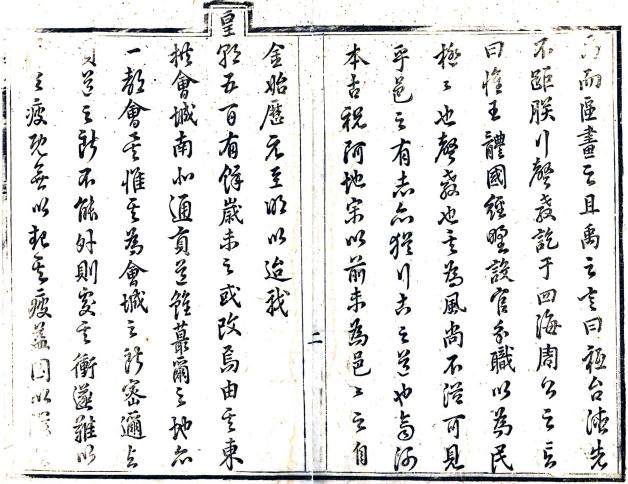 而區畫之且禹之言曰祗台德先
不距朕行聲教訖于四海周公之言
曰惟王體國經野設官分職以為民
極〻也聲教也其為風尚不從可見
乎邑之有志亦猶行古之道也齊河
本古祝阿地宋以前未為邑〻之自
二
金始歷元至明以迨我
皇朝五百有餘歲未之或改焉由其東
拱會城南北通貢道雖蕞爾之地亦
一都會其惟其為會城之所密邇與
貢道之所不能外則受其衝遂難以
之疲既無以起其疲益因以